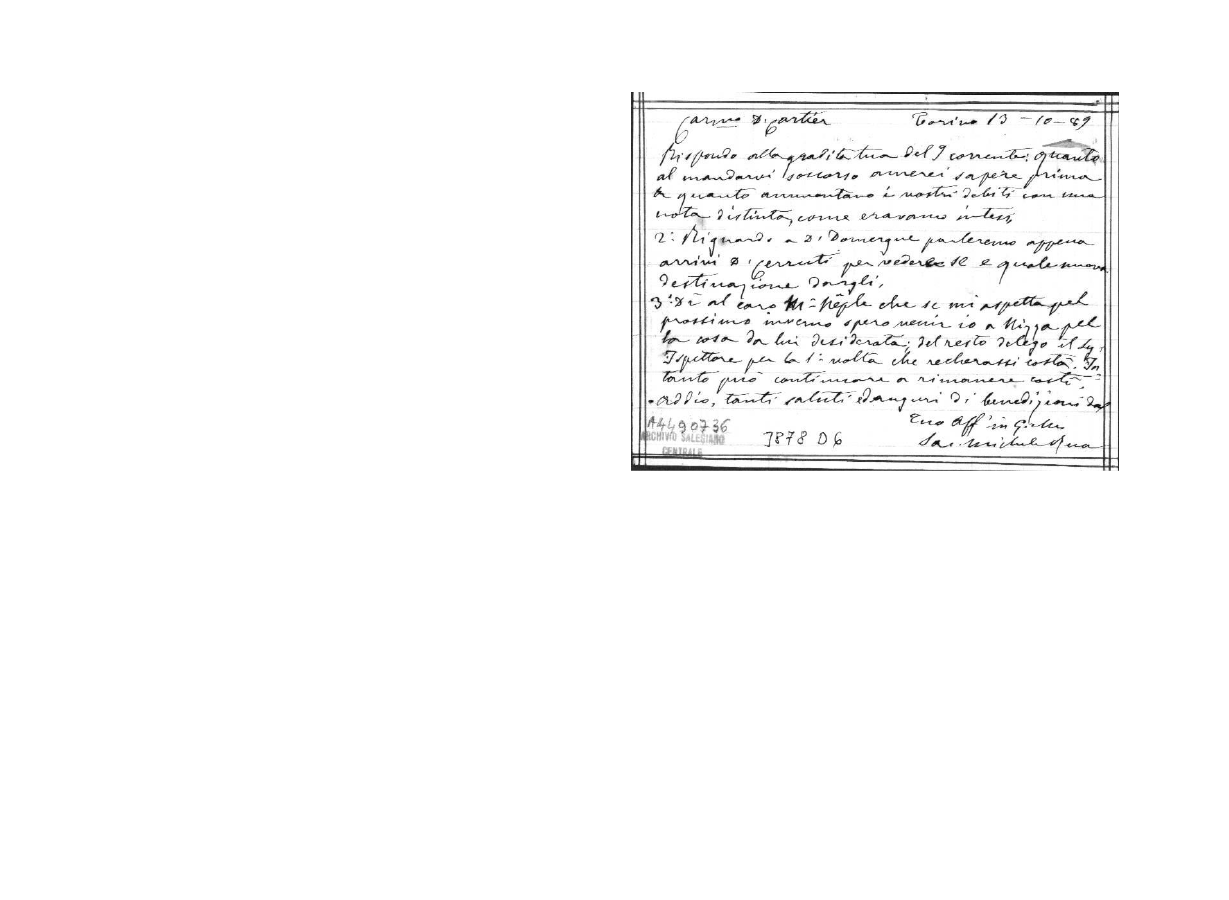 Car.mo D. Cartier Torino 13-10-89
Rispondo alla gradita tua del 9 corrente: quanto
al mandarvi soccorso amerei sapere prima
a quanto ammontano i vostri debiti con una
nota distinta, come eravamo intesi,
2.° Riguardo a D. Domergue parleremo appena
arrivi D. Cerruti per vedere se e quale nuova
destinazione dargli,
3.° Di' al caro che se mi aspetta pel
prossimo inverno spero venir io a Nizza pel
la cosa da lui desiderata; del resto delego il Sig.
Ispettore per la 1.a volta che recherassi costà. In
tanto può continuare a rimanere costì.
Addio, tanti saluti ed auguri di benedizioni dal
Tuo Aff. in G. e M.
Sac. Michele Rua
A4490736
ARCHIVIO SALESIANO
CENTRALE
3878 D6